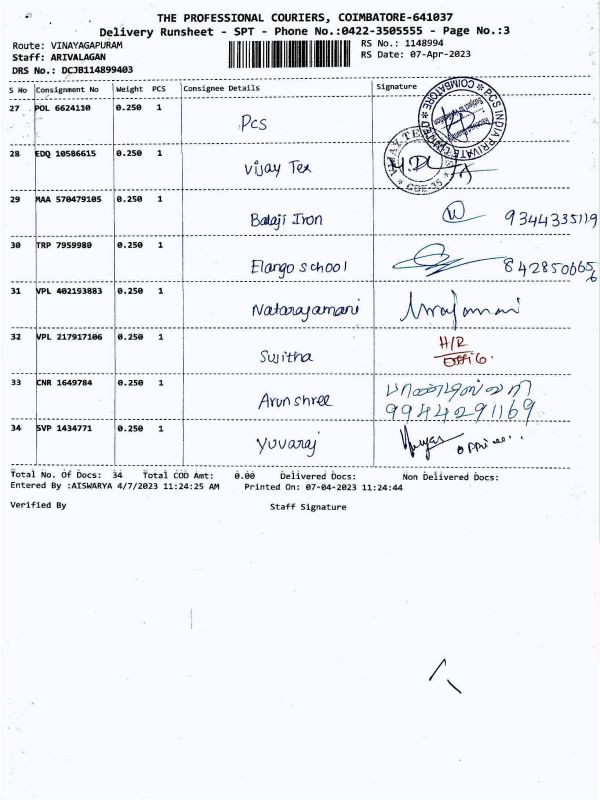 THE PROFESSIONAL COURIERS, COIMBATORE-641037
Delivery Runsheet - SPT - Phone No.:0422-3505555 - Page No.:3
Route: VINAYAGAPURAM RS No.: 1148994
Staff: ARIVALAGAN RS Date: 07-Apr-2023
DRS No.: DCJB114899403
S No Consignment No Weight PCS Consignee Details Signature
27 POL 6624110 0.250 1 Pcs
COIMBATORE * PCS INDIA PRIVATE LIMITED *
28 EDQ 10586615 0.250 1 Vijay Tex
CBE-35
29 MAA 570479105 0.250 1 Balaji Iron 9344335119
30 TRP 7959980 0.250 1 Elango school 8428506656
31 VPL 402193883 0.250 1 Natarajamani
32 VPL 217917106 0.250 1 Sujitha H/R
33 CNR 1649784 0.250 1 Arunshree
9944291169
34 SVP 1434771 0.250 1 Yuvaraj
Total No. Of Docs: 34 Total COD Amt: 0.00 Delivered Docs: Non Delivered Docs:
Entered By :AISWARYA 4/7/2023 11:24:25 AM Printed On: 07-04-2023 11:24:44
Verified By Staff Signature